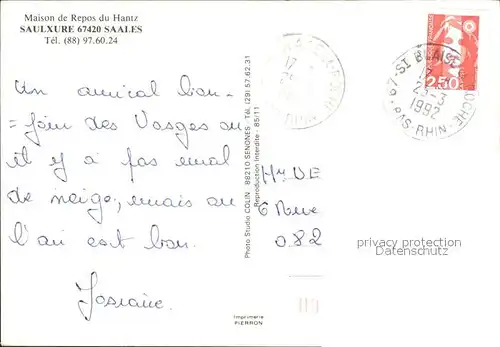 Maison de Repos du Hantz
SAULXURE 67420 SAALES
Tél. (88) 97.60.24
Un amical bon-
=join des Vosges où
il y a pas mal
de neige, mais où
l'air est bon.
Josiane.
Photo Studio COLIN 88210 SENONES Tél. (29) 57.62.31
Reproduction Interdite - 85/11
Imprimerie
PIERRON
2,50
67-ST BLAISE ROCHE
17
23-3
1992
BAS-RHIN
17
6 Rue
082
privacy protection
Datenschutz